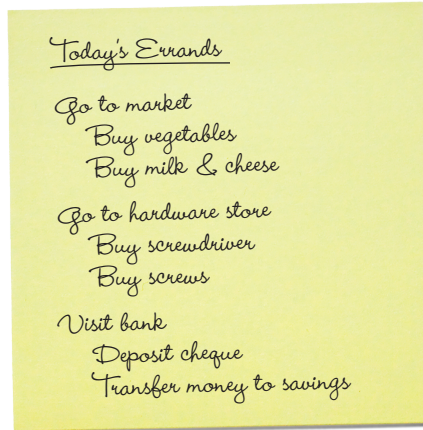 Today's Errands
Go to market
Buy vegetables
Buy milk & cheese
Go to hardware store
Buy screwdriver
Buy screws
Visit bank
Deposit cheque
Transfer money to savings